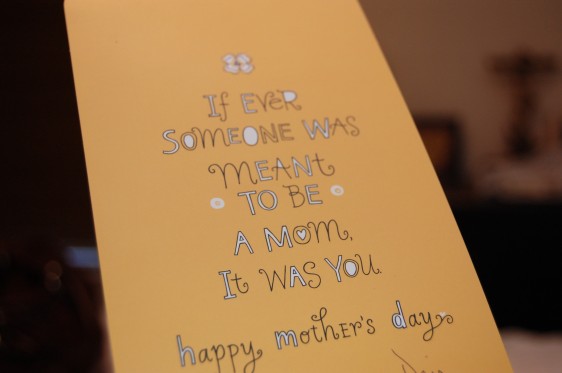 If EVER
SOMEONE WAS
MEANt
TO BE
A MOM,
It WAS YOU.
happy mother's day